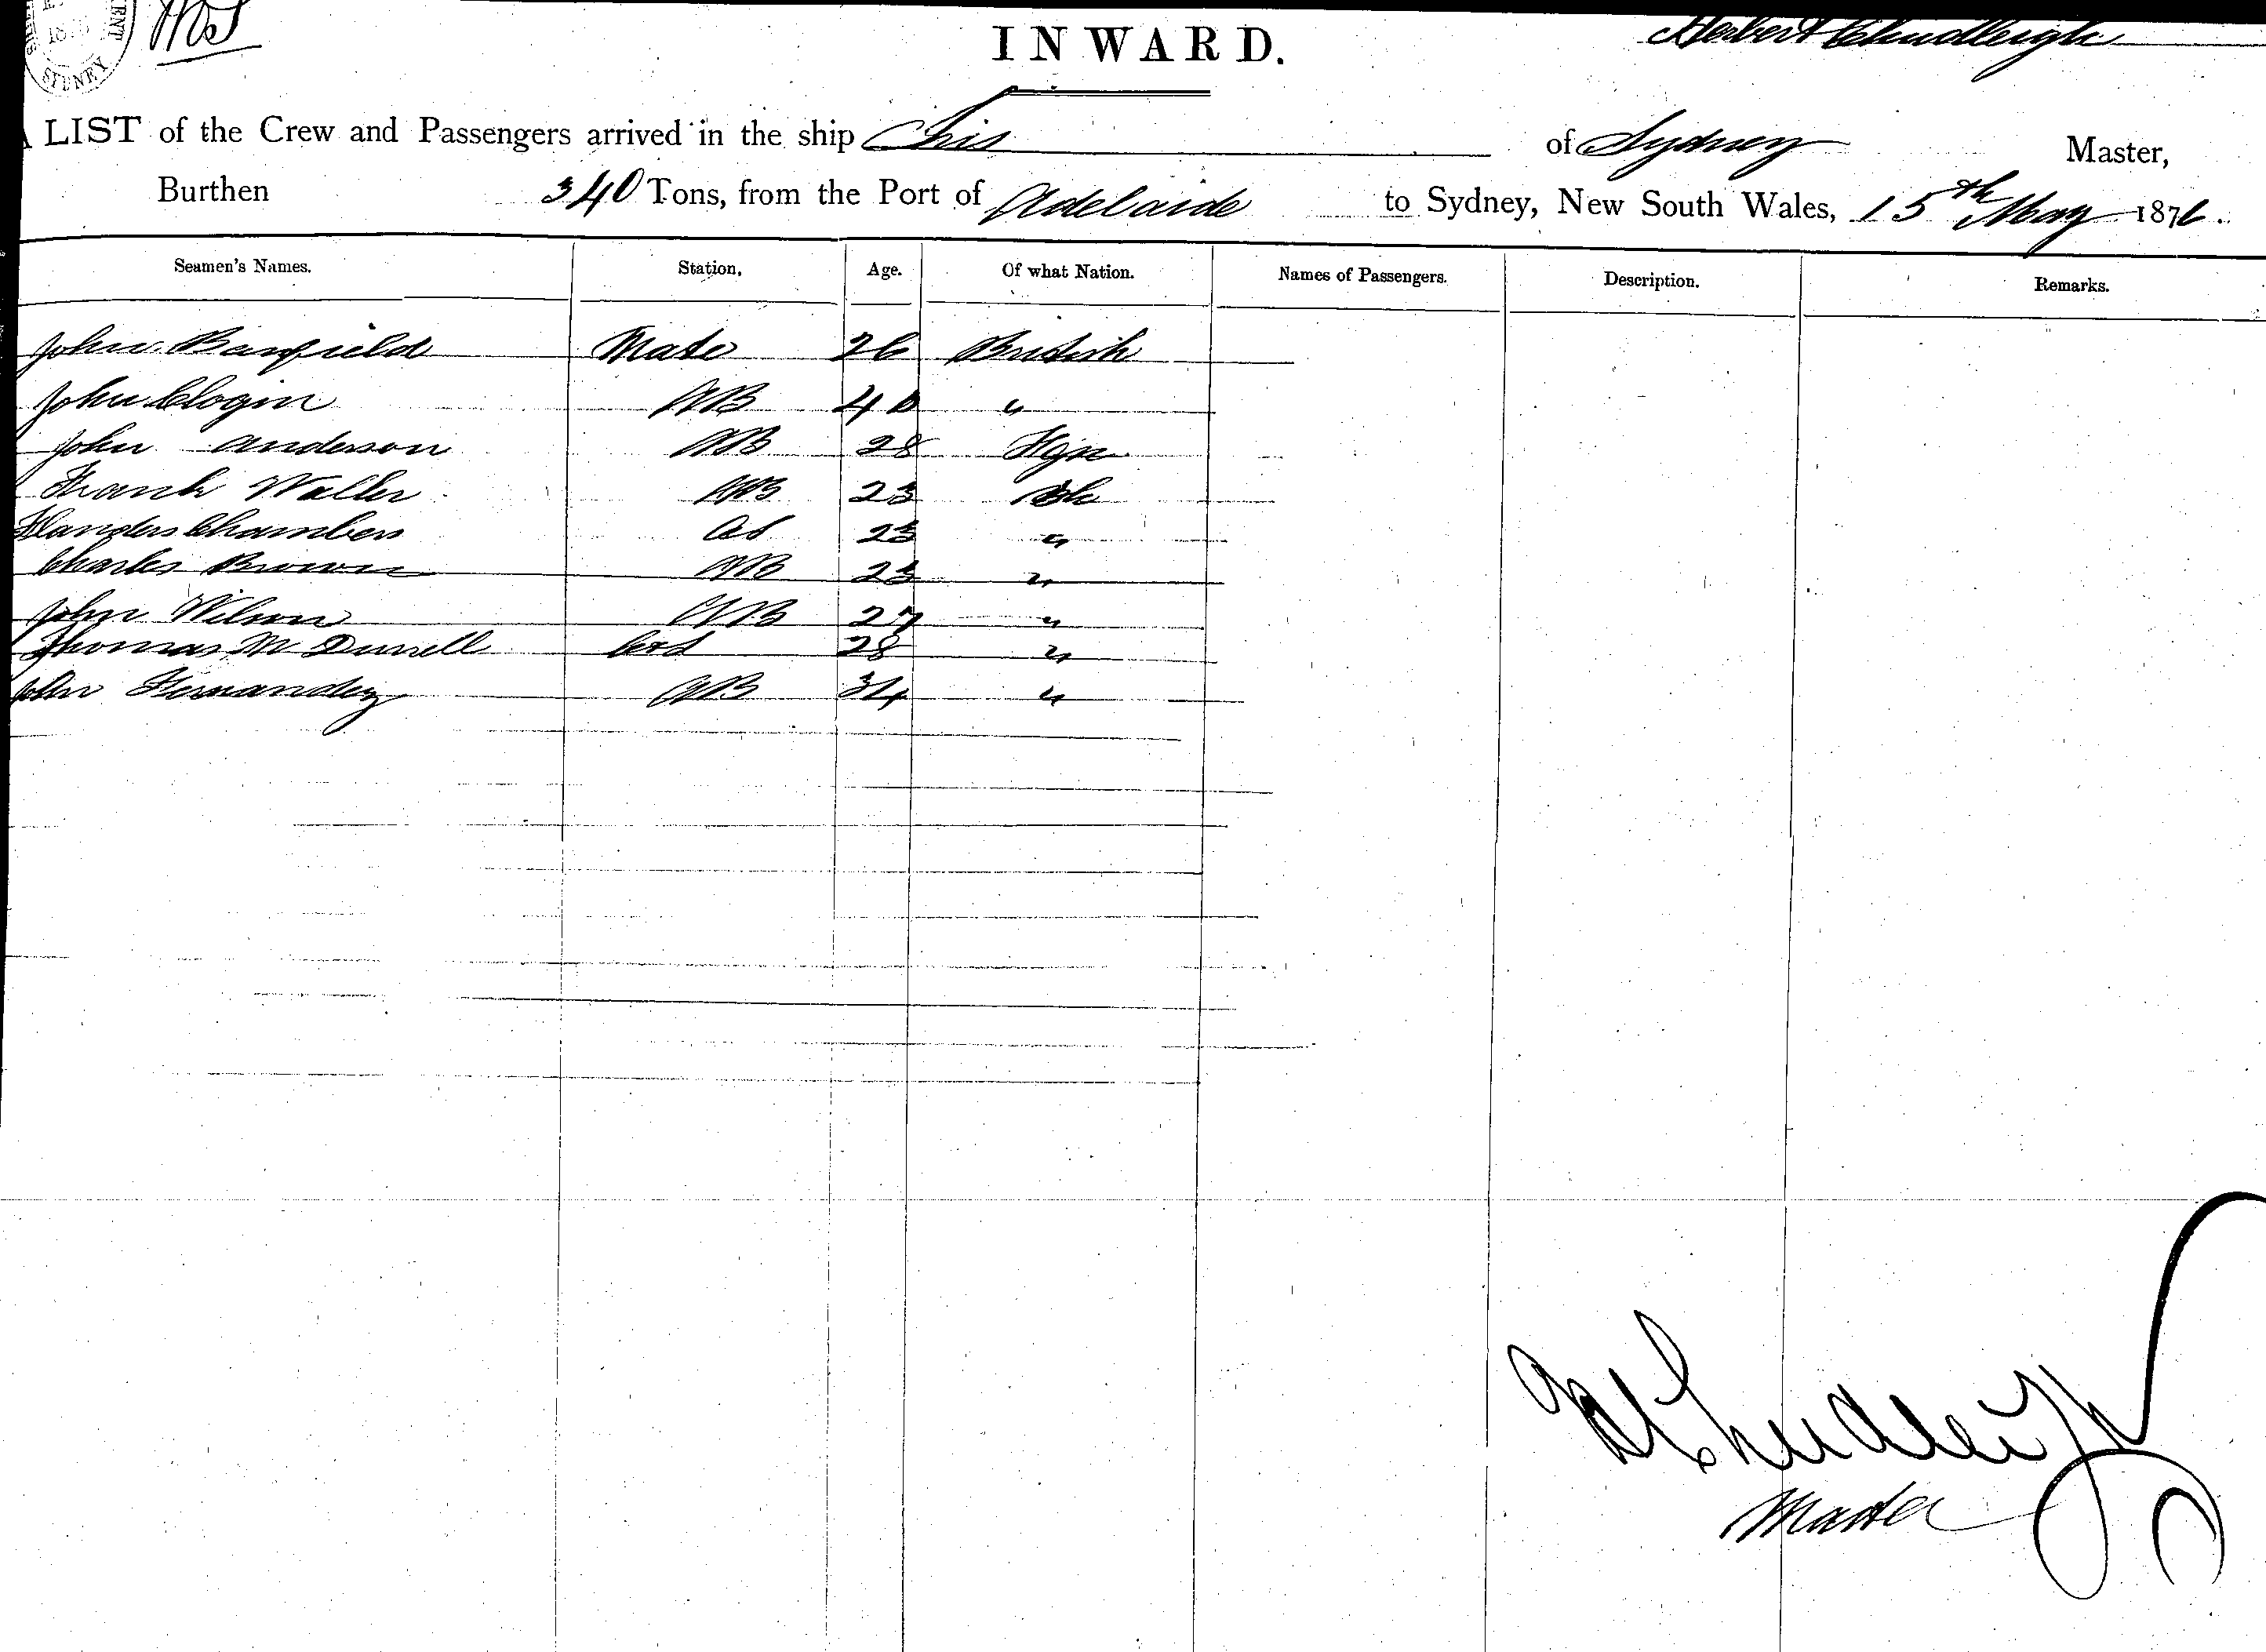 SYDNEY
INWARD.
Herbert Chudleigh
LIST of the Crew and Passengers arrived in the ship Iris of Sydney Master,
Burthen 340 Tons, from the Port of Adelaide to Sydney, New South Wales, 15th May 1876.
Seamen's Names. Station. Age. Of what Nation. Names of Passengers. Description. Remarks.
John Banfield Mate 26 British
John Clogin AB 40 "
John Anderson AB 28
Frank Waller AB 23
Flanders Chambers 23 "
Charles Brown AB 23 "
John Wilson AB 27 "
Thomas 28 "
John Fernandez AB 34 "
H Chudleigh
Master